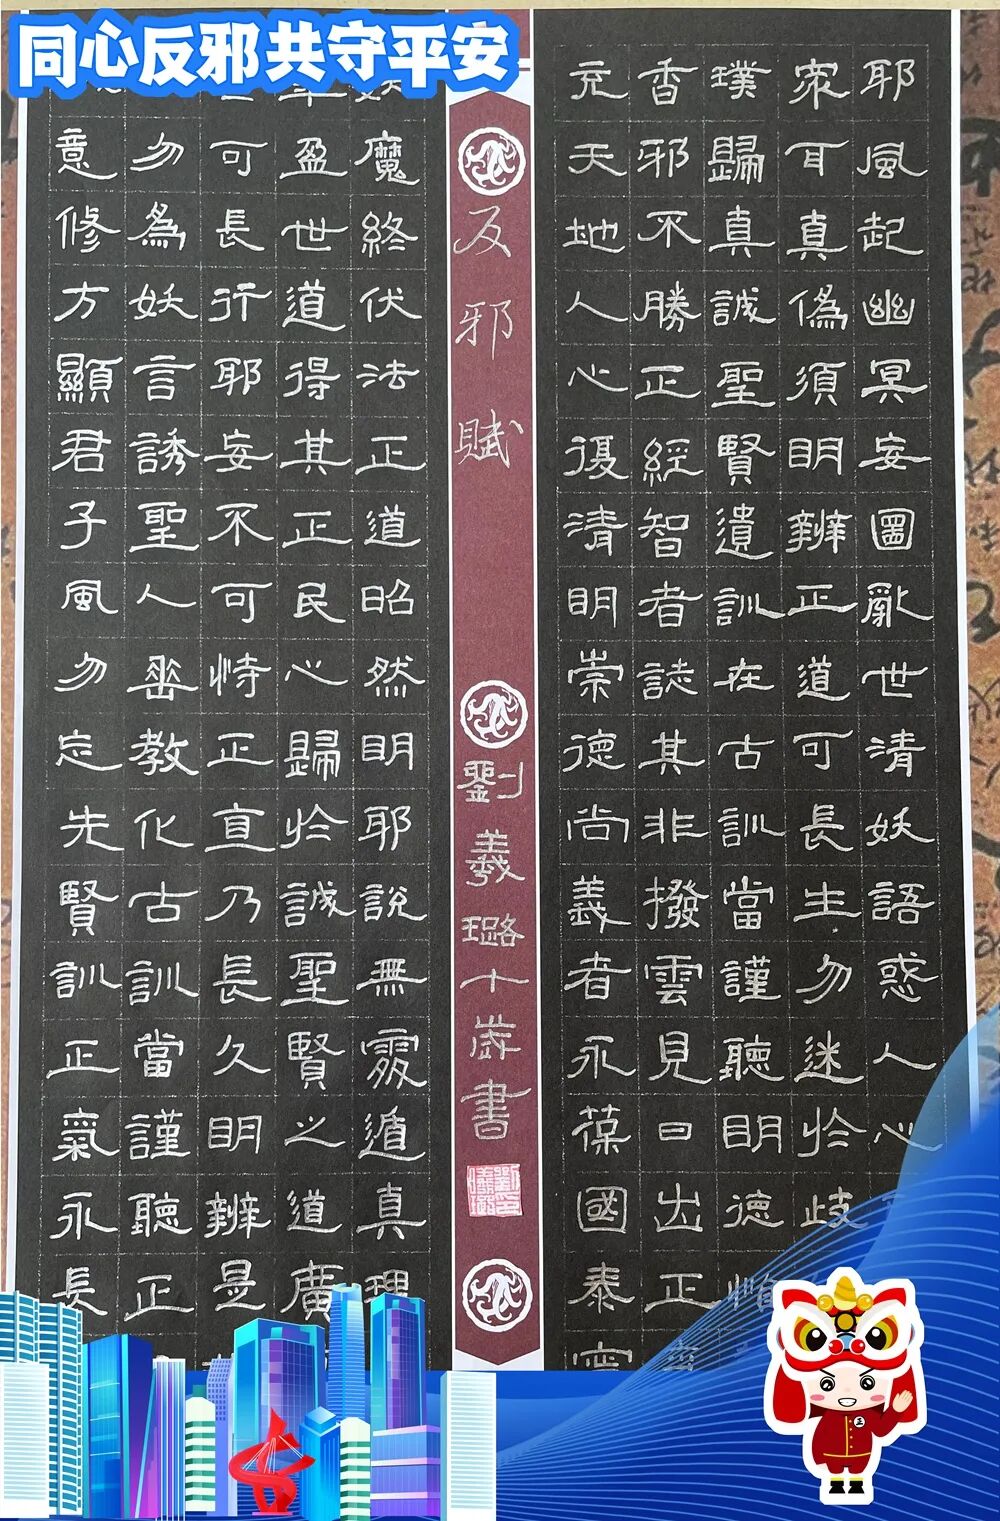 同心反邪共守平安
耶風起幽冥妄圖亂世清妖語惑人心
眾耳真偽須明辨正道可長生勿迷於歧
璞歸真誠聖賢遺訓在古訓當謹聽明德惟
香邪不勝正經智者誌其非撥雲見日出正
充天地人心復清明崇德尚義者永葆國泰
反邪賦
劉羲璐十歲書
妖魔終伏法正道昭然明耶說無處遁真理
年盈世道得其正民心歸於誠聖賢之道廣
可長行耶妄不可恃正直乃長久明辨是
勿為妖言誘聖人垂教化古訓當謹聽正
意修方顯君子風勿忘先賢訓正氣永長